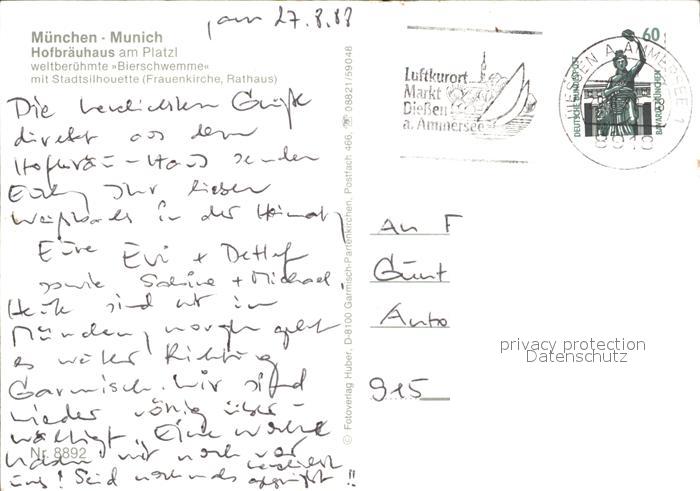 München - Munich
Hofbräuhaus am Platzl
weltberühmte »Bierschwemme«
mit Stadtsilhouette (Frauenkirche, Rathaus)
27.8.88
Die herzlichsten Grüße
direkt aus dem
Hofbräu-Haus senden
Euch, Ihr lieben
in der Heimat,
Eure Evi + Detlef
sowie Sabine + Michael.
Heute sind wir in
München, morgen geht
es weiter Richtung
Garmisch. Wir sind
wieder völlig über-
wältigt. Eine Woche
haben wir noch vor
uns! Seid nochmals herzlichst
gegrüßt!!
Nr. 8892
© Fotoverlag Huber, D-8100 Garmisch-Partenkirchen, Postfach 466, ☎ 08821/59048
Luftkurort
Markt
Dießen
a. Ammersee
DIESSEN A. AMMERSEE 1
8918
60
DEUTSCHE BUNDESPOST
BAVARIA MÜNCHEN
An F
Günt
Anto
915
privacy protection
Datenschutz